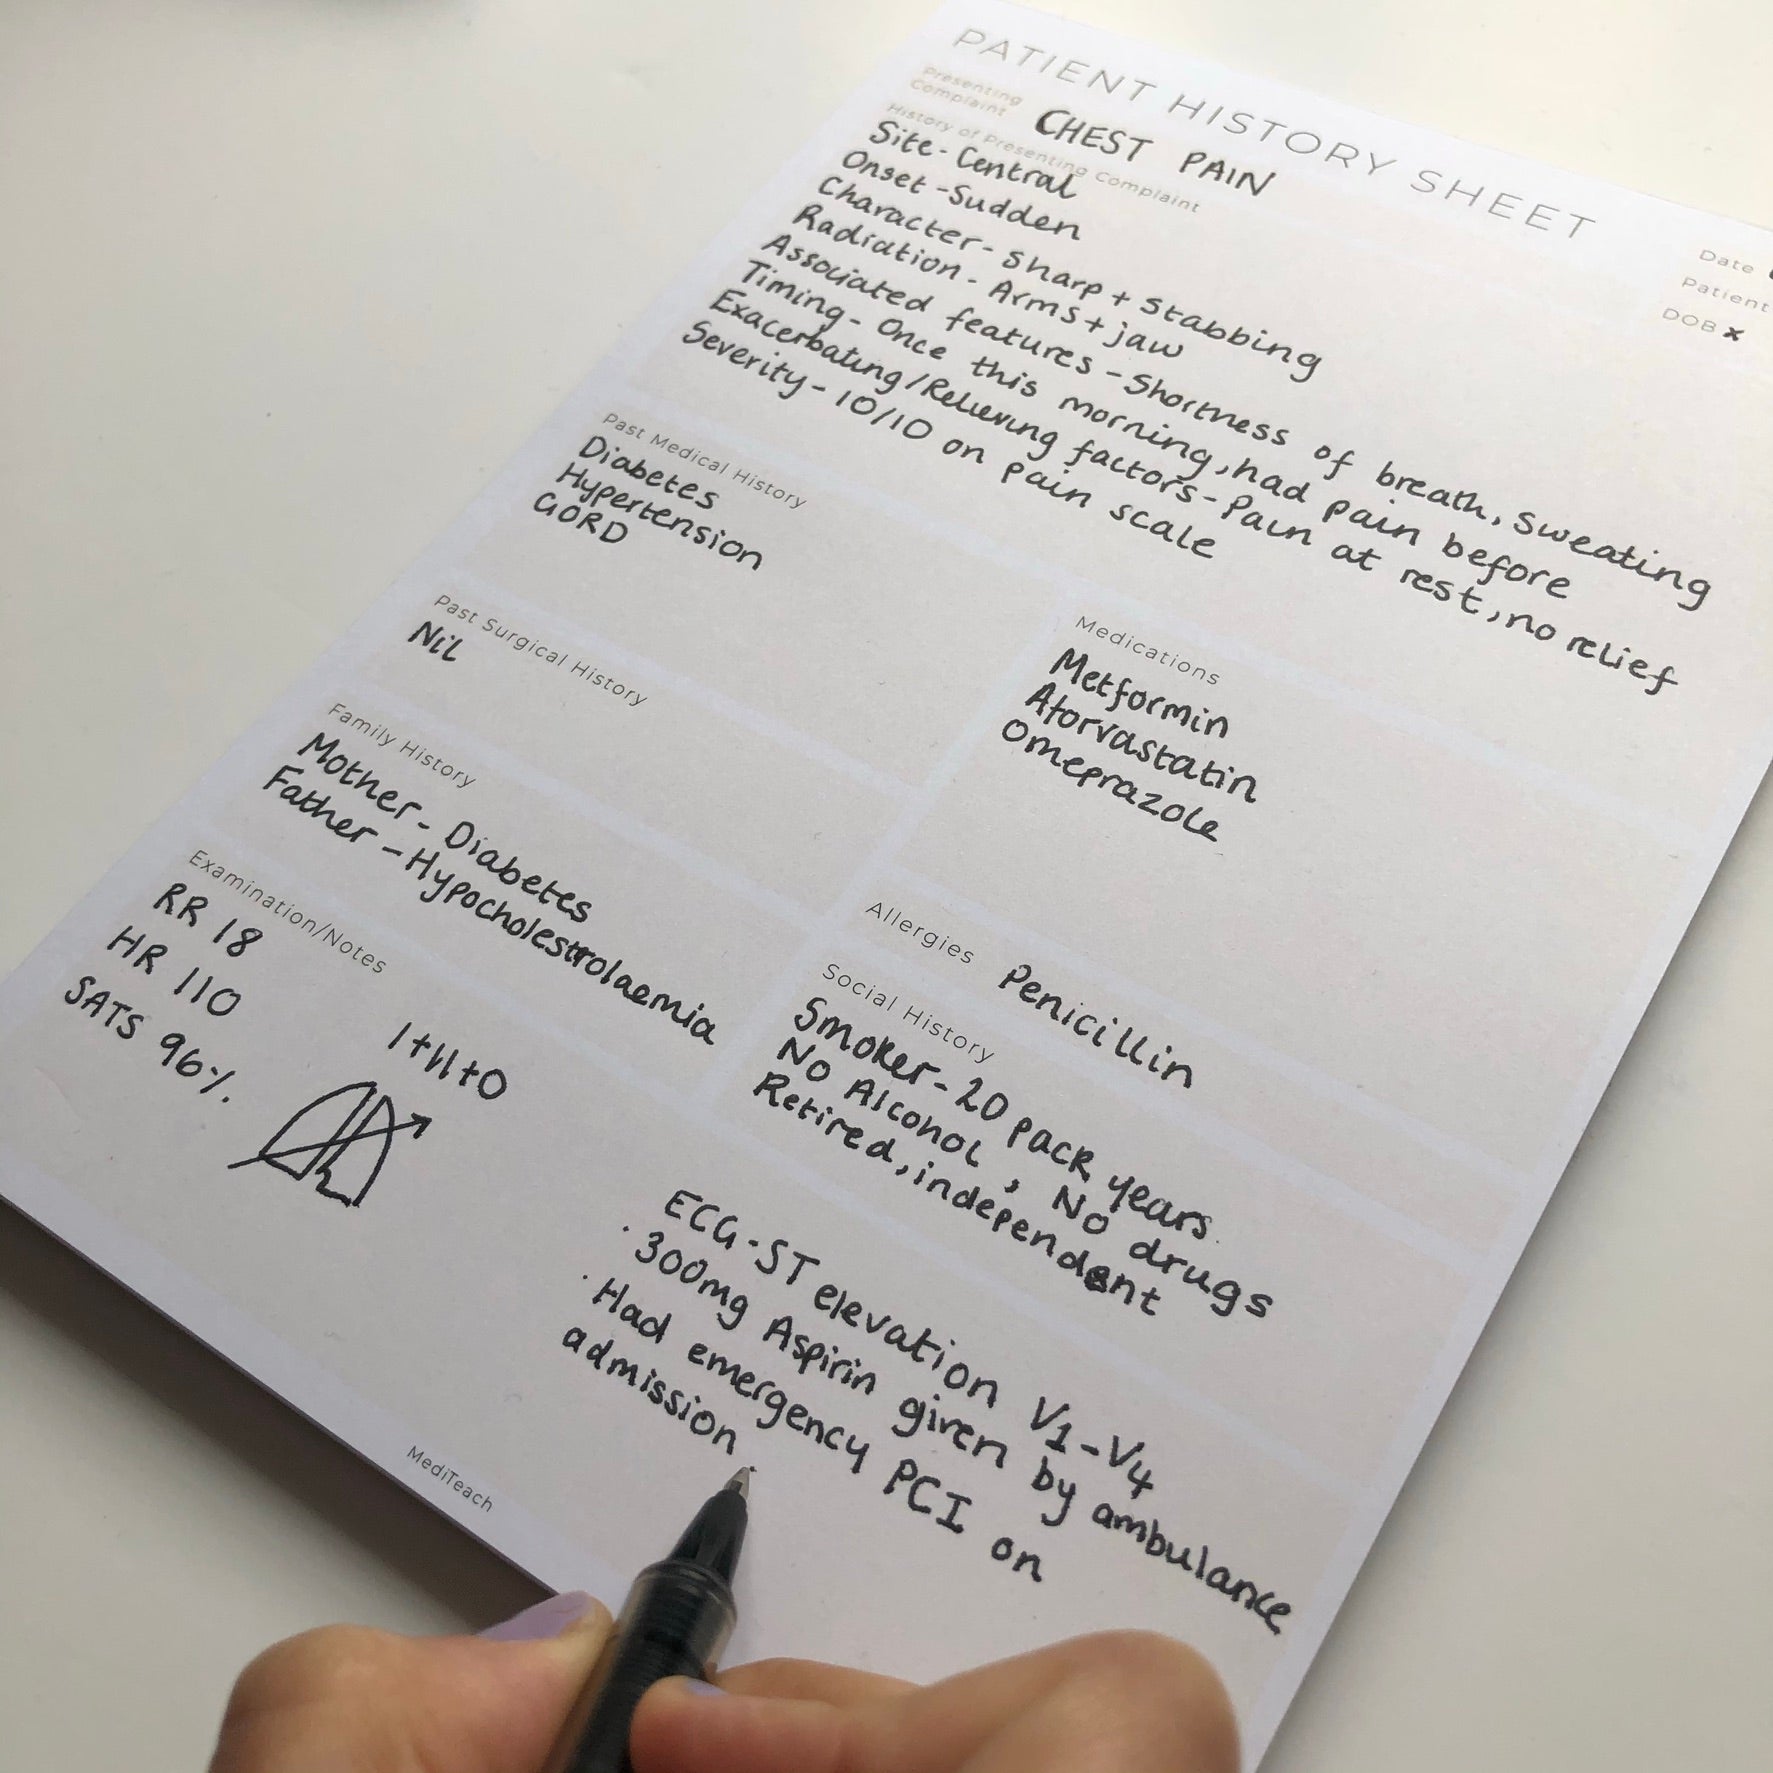 PATIENT HISTORY SHEET
Date
Patient
DOB x
Presenting
Complaint
CHEST PAIN
History of Presenting Complaint
Site - Central
Onset - Sudden
Character - Sharp + Stabbing
Radiation - Arms + jaw
Associated features - Shortness of breath, sweating
Timing - Once this morning, had pain before
Exacerbating/Relieving factors - Pain at rest, no relief
Severity - 10/10 on pain scale
Past Medical History
Diabetes
Hypertension
GORD
Past Surgical History
Nil
Family History
Mother - Diabetes
Father - Hypocholestrolaemia
Medications
Metformin
Atorvastatin
Omeprazole
Allergies Penicillin
Social History
Smoker - 20 pack years.
No Alcohol, No drugs
Retired, independent
Examination/Notes
RR 18
HR 110
SATS 96%.
I+II+O
ECG - ST elevation V1-V4
· 300mg Aspirin given by ambulance
· Had emergency PCI on
admission
MediTeach